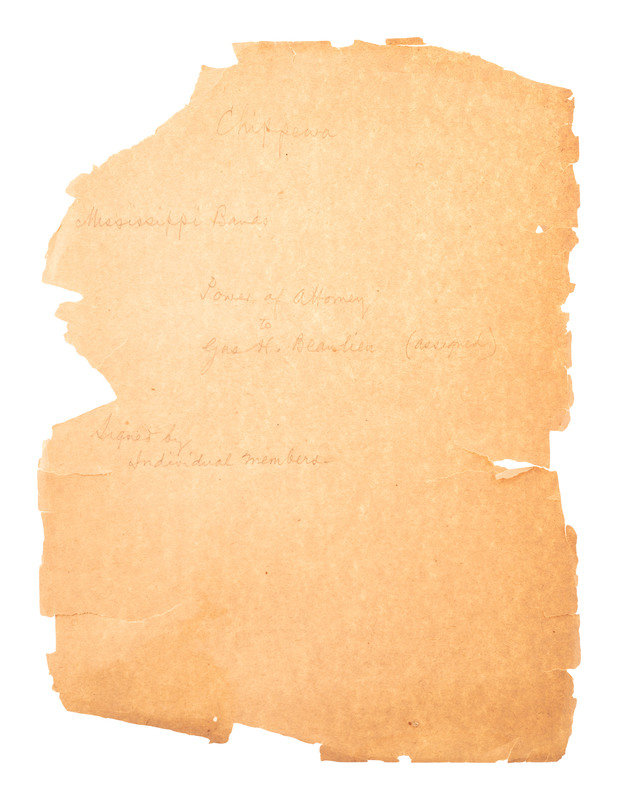 Chippewa
Mississippi Bands
Power of Attorney
to
Gus H. Beaulieu (assigned)
Signed by
Individual members